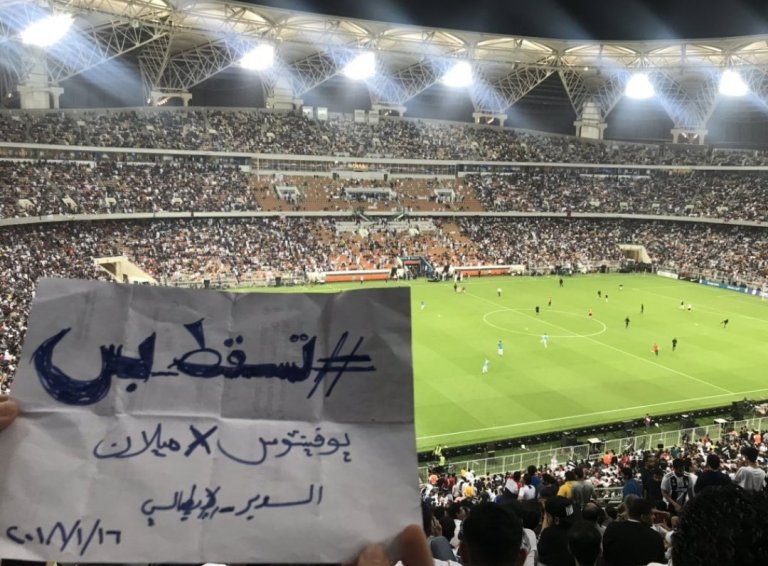 #تسقط_بس
يوفينتوس X ميلان
السوبر_الإيطالي
٢٠١٨/١/١٦